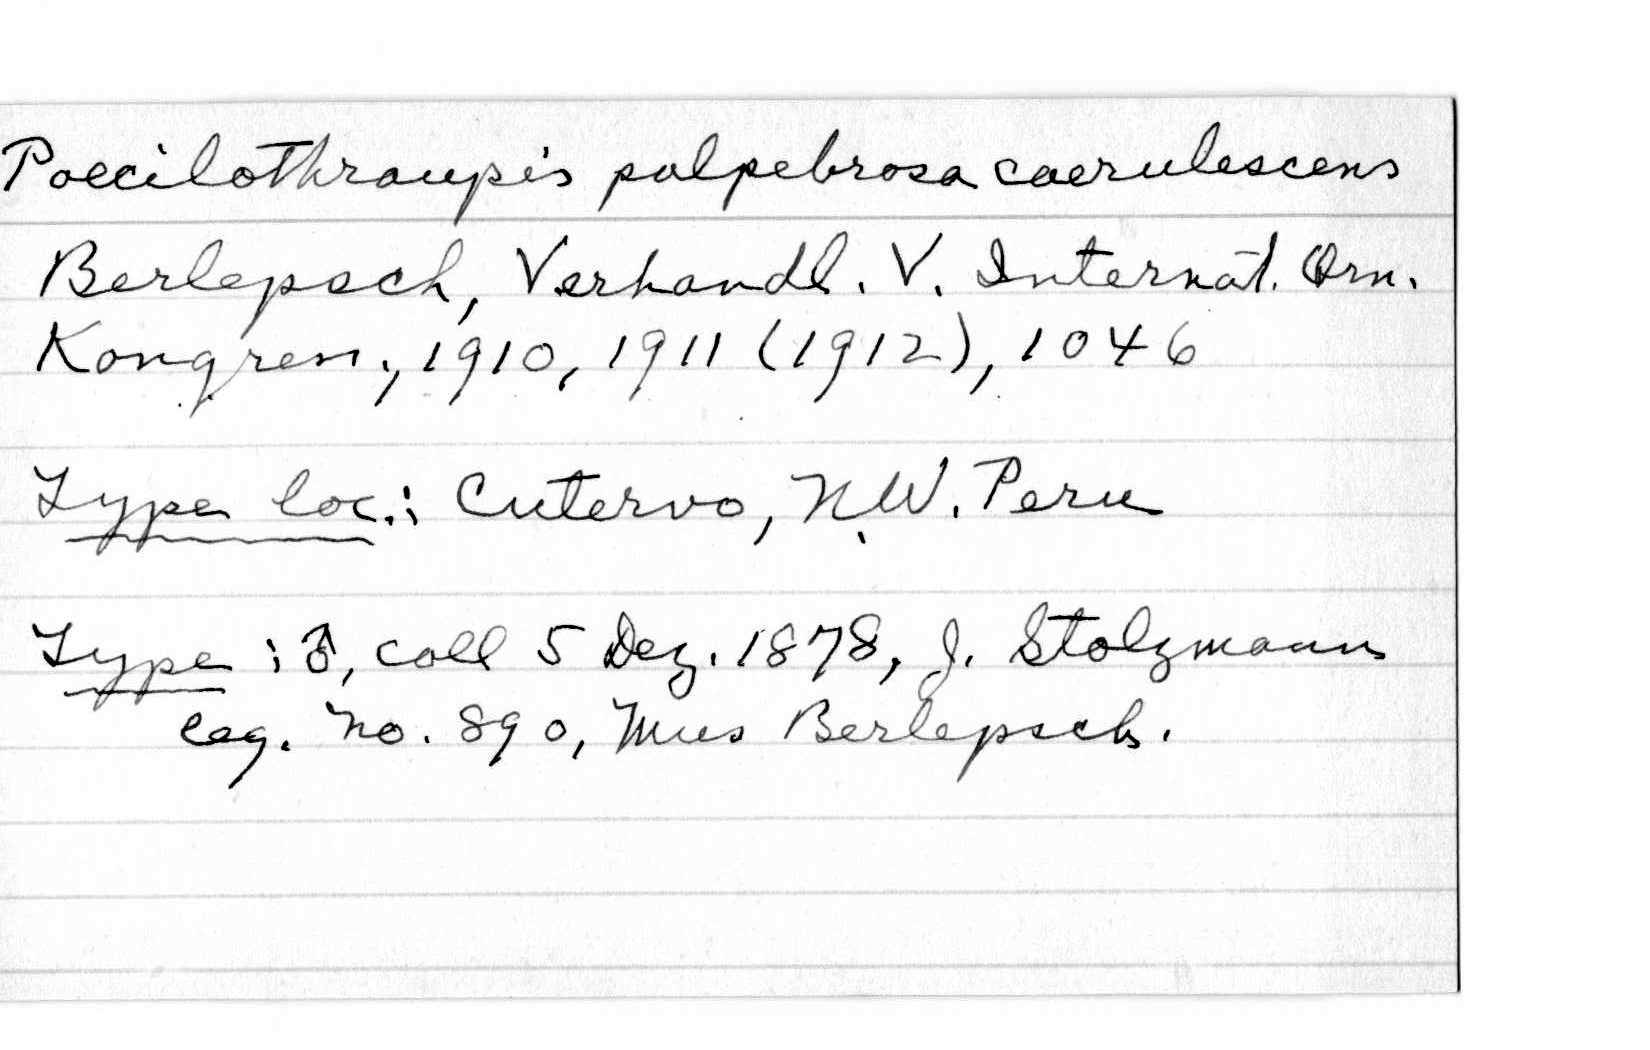 Poecilothraupis palpebrosa caerulescens
Berlepsch, Verhandl. V. Internat. Orn.
Kongress., 1910, 1911 (1912), 1046
Type loc.: Cutervo, N.W. Peru
Type : ♂, coll 5 Dez. 1878, J. Stolzmann
leg. No. 890, Mus Berlepsch.